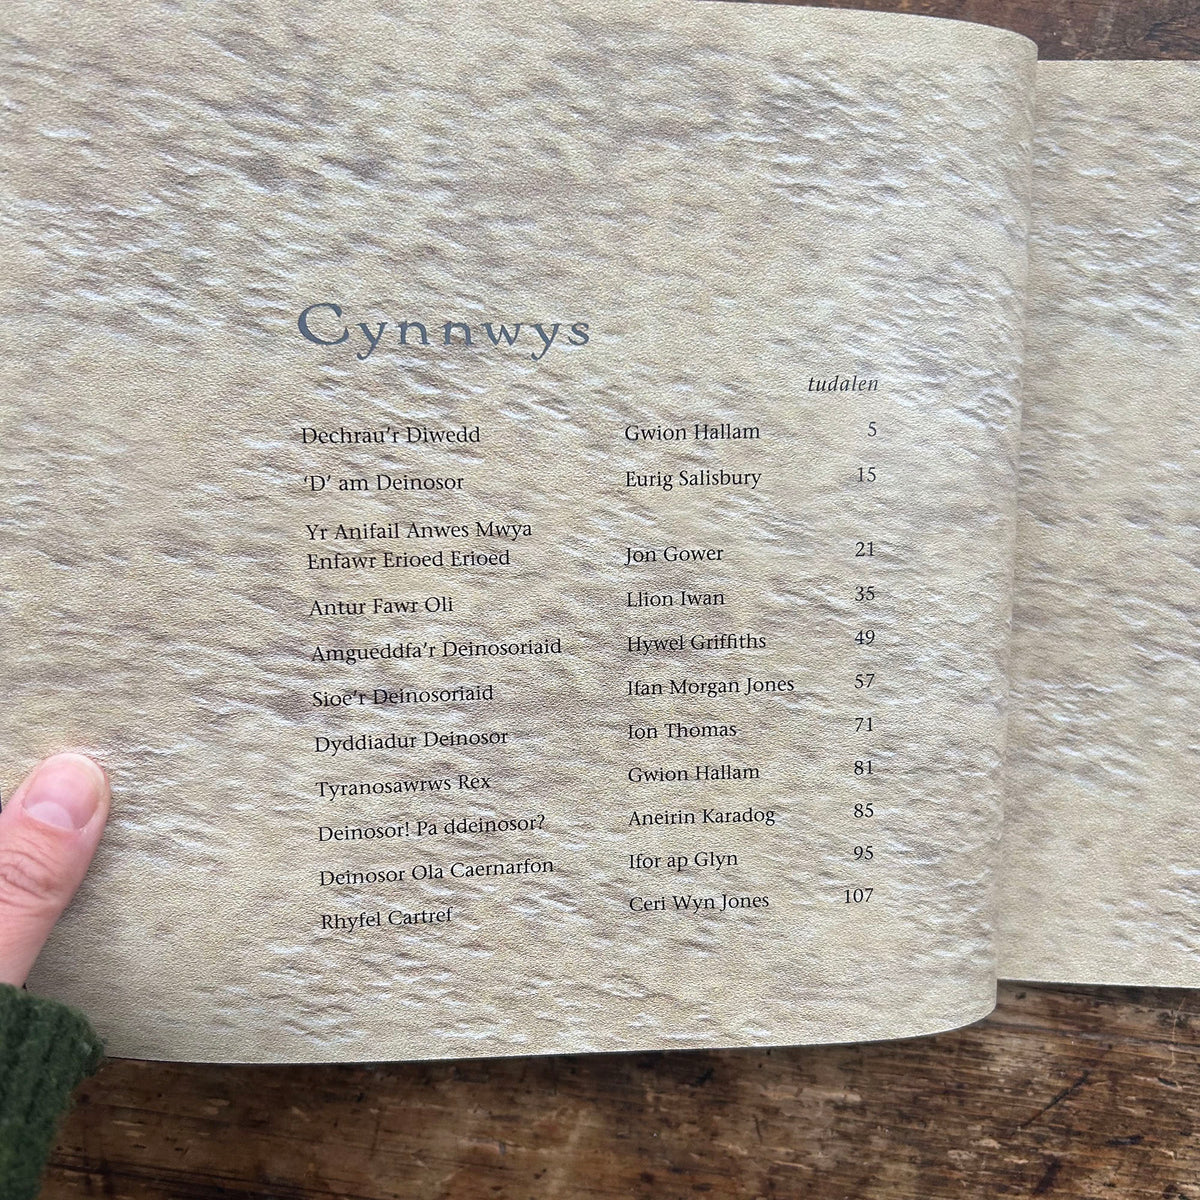 Cynnwys
tudalen
Dechrau'r Diwedd Gwion Hallam 5
'D' am Deinosor Eurig Salisbury 15
Yr Anifail Anwes Mwya
Enfawr Erioed Erioed Jon Gower 21
Antur Fawr Oli Llion Iwan 35
Amgueddfa'r Deinosoriaid Hywel Griffiths 49
Sioe'r Deinosoriaid Ifan Morgan Jones 57
Dyddiadur Deinosor Ion Thomas 71
Tyranosawrws Rex Gwion Hallam 81
Deinosor! Pa ddeinosor? Aneirin Karadog 85
Deinosor Ola Caernarfon Ifor ap Glyn 95
Rhyfel Cartref Ceri Wyn Jones 107